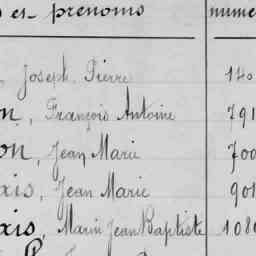 es prénoms numé
Joseph Pierre 140
on, François Antoine 791
on, Jean Marie 700
xis, Jean Marie 901
xis, Marin Jean Baptiste 1080